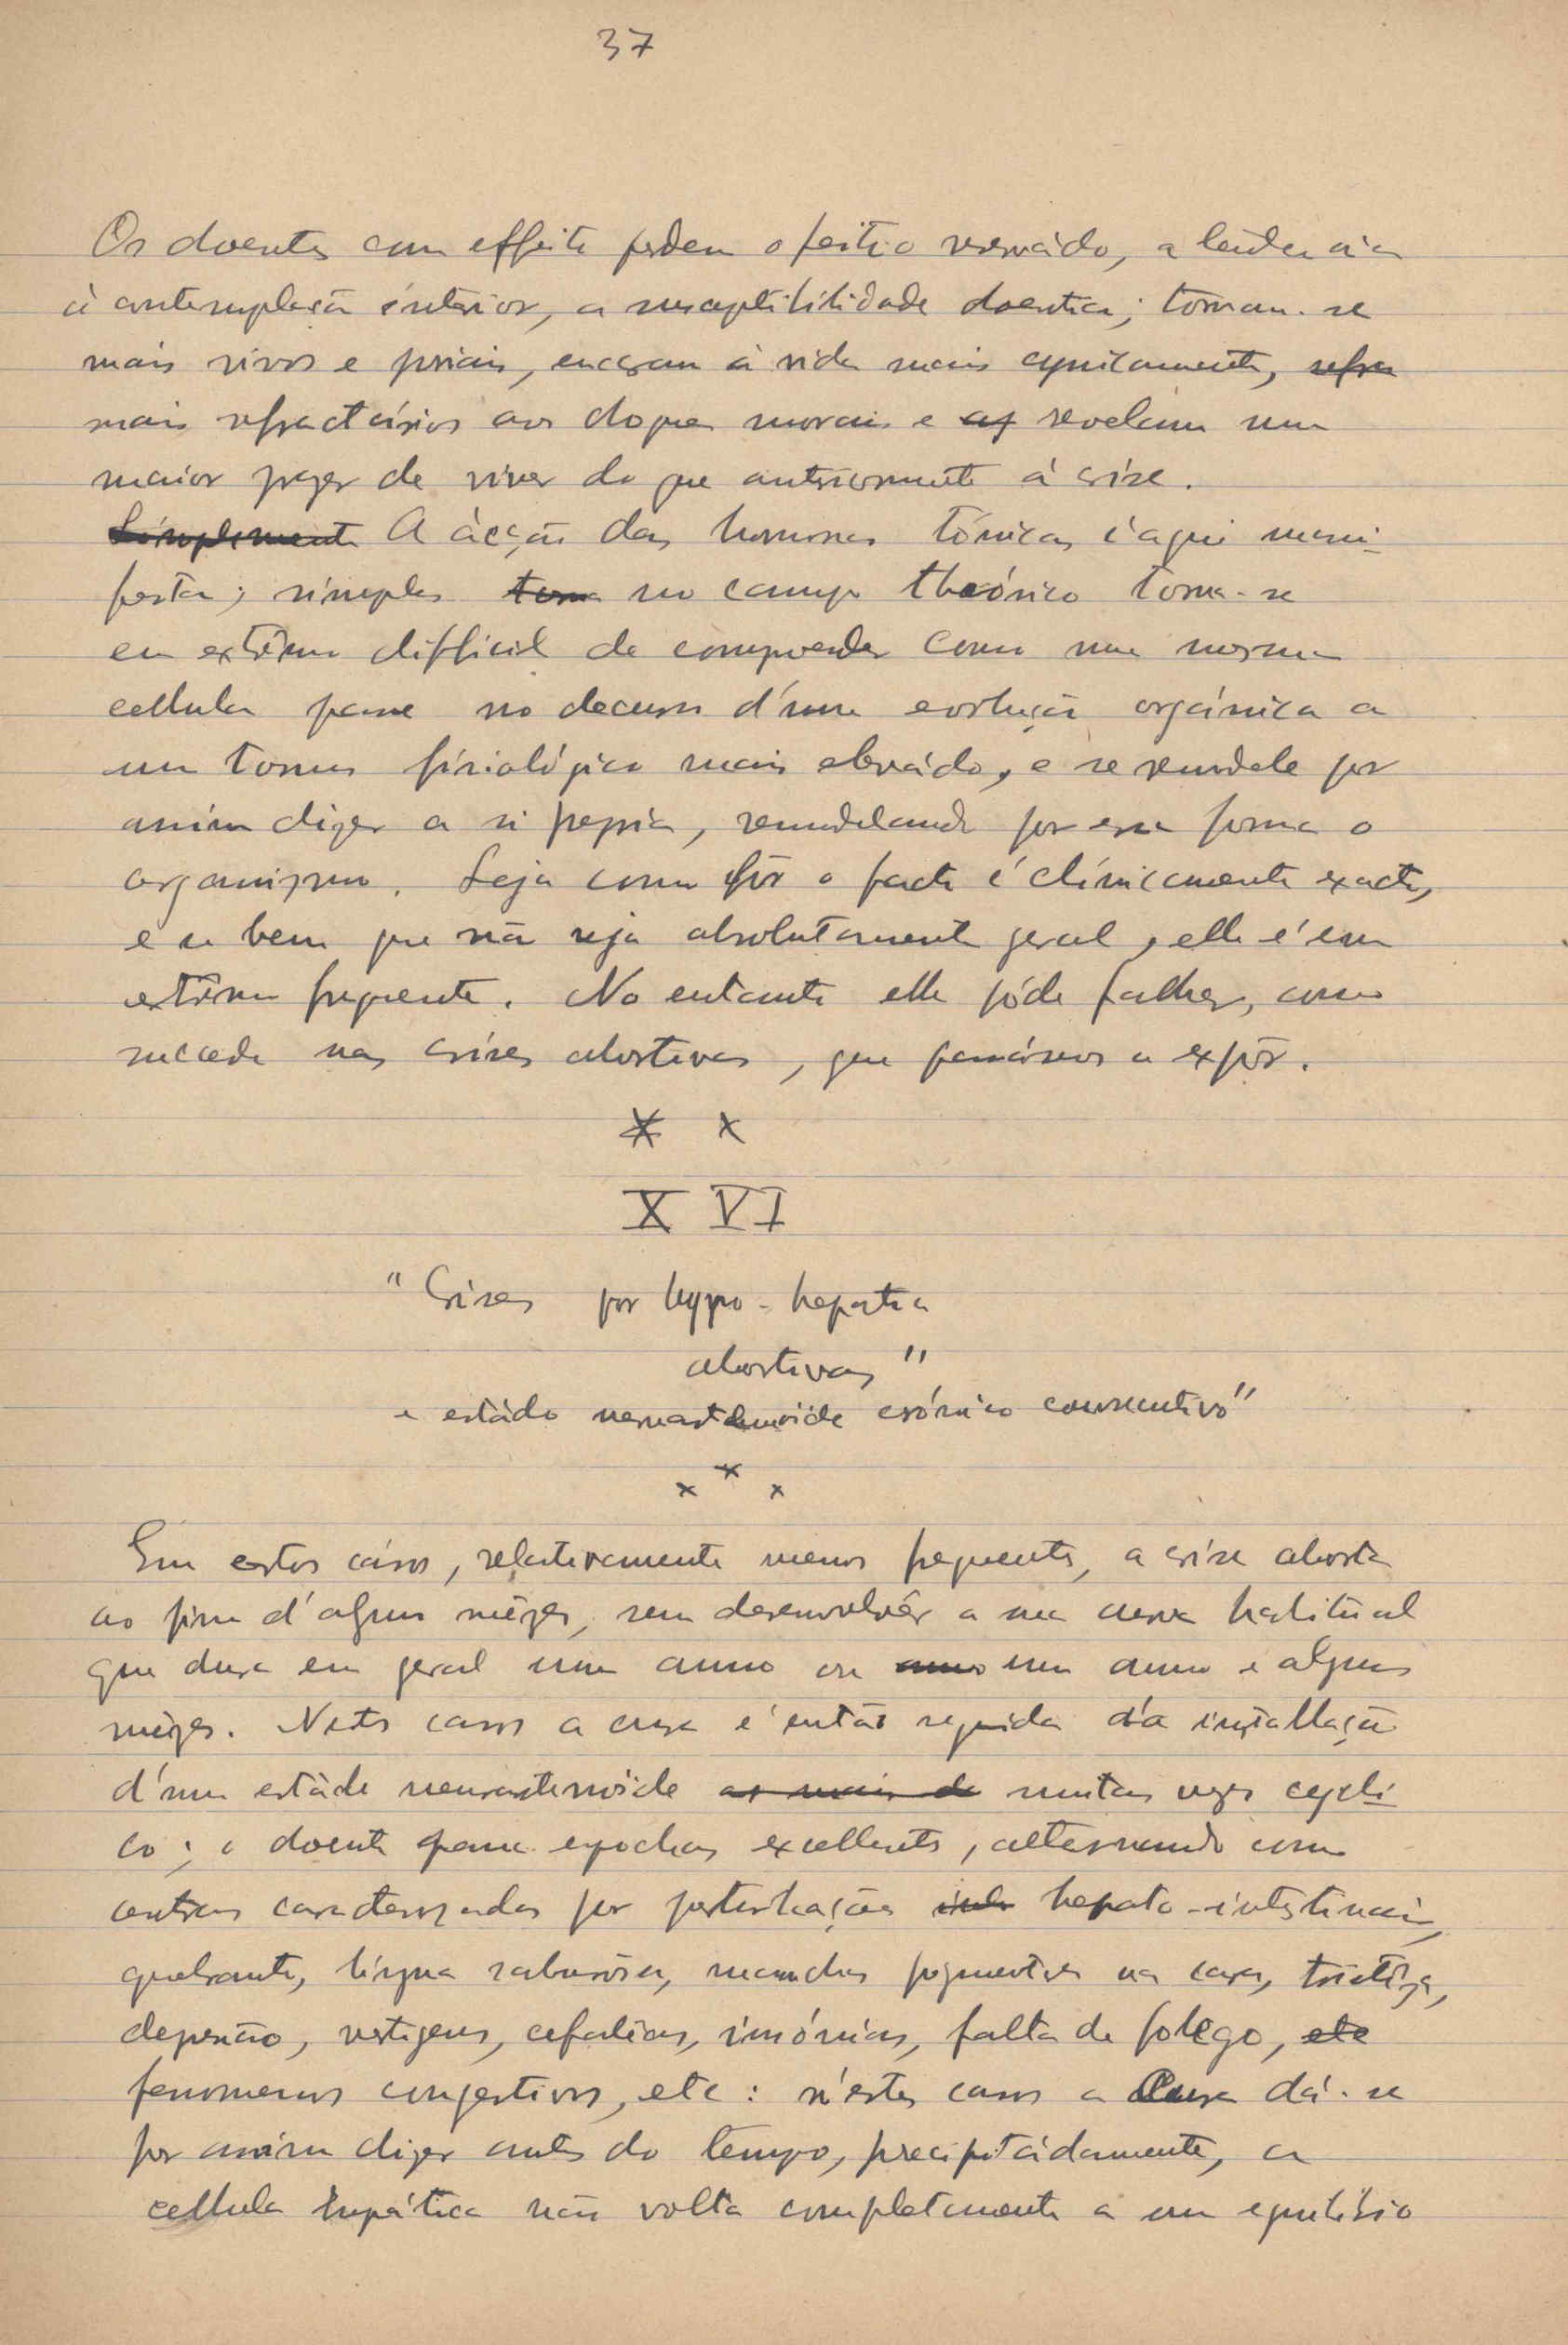 37
Os doentes com effeito perdem o feitio reservádo, a tendencia
á contemplação intérior, a susceptibilidade doentia; tornam-se
mais vivos e joviais, encaram a vida mais cynicamente,
mais refractários aos choques morais e revelam um
maior prazer de viver do que anteriormente á crise.
A ácção das hormonas tónicas é aqui mani-
festa; simples no campo theórico torna-se
em extrêmo difficil de comprender como uma mesma
cellula passe no decurso d'uma evolução orgánica a
um tonus fisiológico mais elevádo, e se remodele por
assim dizer a si propria, remodelando por essa forma o
organismo. Seja como fôr o facto é clínicamente exacto,
e se bem que não seja absolutamente geral, elle é em
extrêmo frequente. No entanto elle póde falhar, como
succede nas crises abortivas, que passâmos a expôr.
* x
XVI
"Crises por hypo-hepatia
abortivas"
e estádo neurasthenoide crónico consecutivo"
x x x
Em estes cásos, relativamente menos frequentes, a crise aborta
ao fim d'alguns mêzes, sem desenvolvêr a sua curva habitual
que dura em geral um anno ou um anno e alguns
mêzes. Nestes casos a cura é então seguida da installação
d'um estádo neurastenoide muitas vezes cycli-
co; o doente passa epochas excellentes, alternando com
outras caracterizadas por perturbações hepato-intestinais,
quebranto, lingua saburrosa, manchas pigmentares na cara, tristêza,
depressão, vertigens, cefaleias, insónias, falta de folego,
fenomenos congestivos, etc: n'estes casos a Cura dá-se
por assim dizer antes do tempo, precipitádamente, a
cellula hepática não volta completamente a um equilibrio